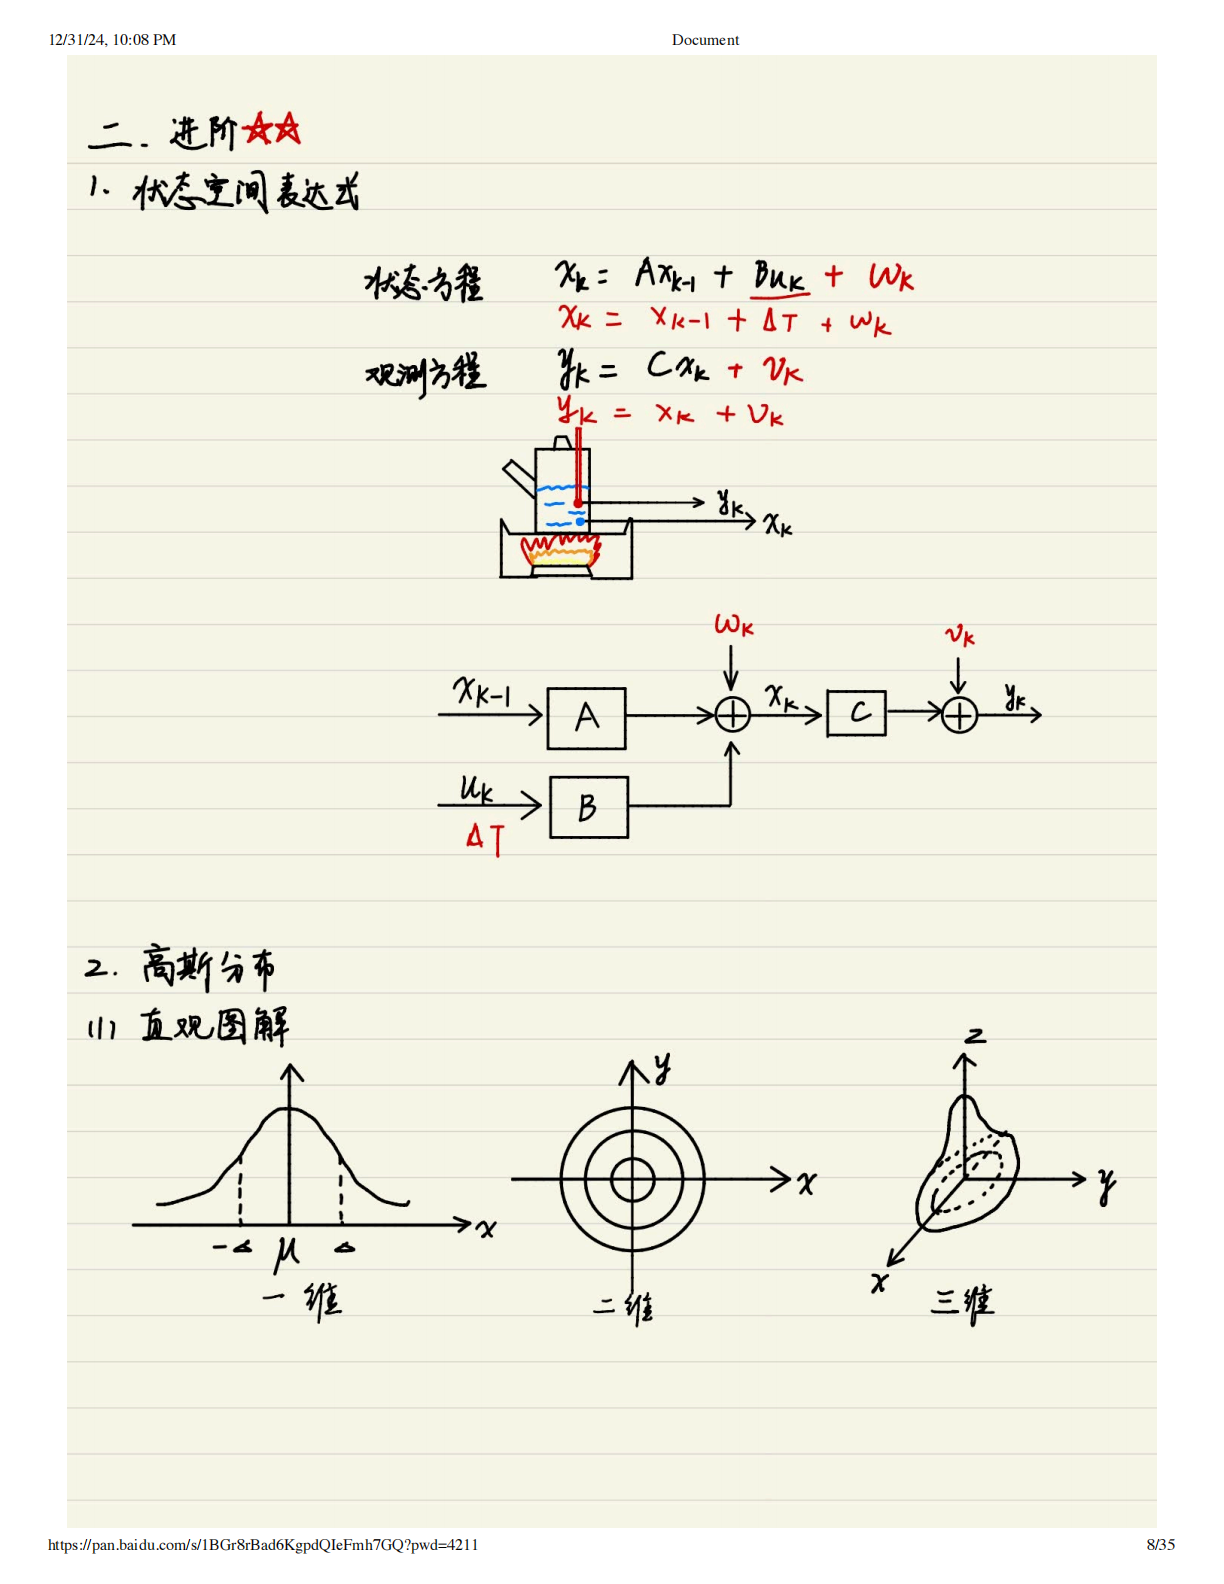 12/31/24, 10:08 PM Document
二. 进阶☆☆
1. 状态空间表达式
状态方程 xₖ = Axₖ₋₁ + Buₖ + wₖ
xₖ = xₖ₋₁ + ΔT + wₖ
观测方程 yₖ = Cxₖ + vₖ
yₖ = xₖ + vₖ
yₖ
xₖ
wₖ vₖ
xₖ₋₁ A ⊕ xₖ C ⊕ yₖ
uₖ B
ΔT
2. 高斯分布
(1) 直观图解
z
y
x x y
-δ μ δ
x
一维 二维 三维
https://pan.baidu.com/s/1BGr8rBad6KgpdQIeFmh7GQ?pwd=4211 8/35